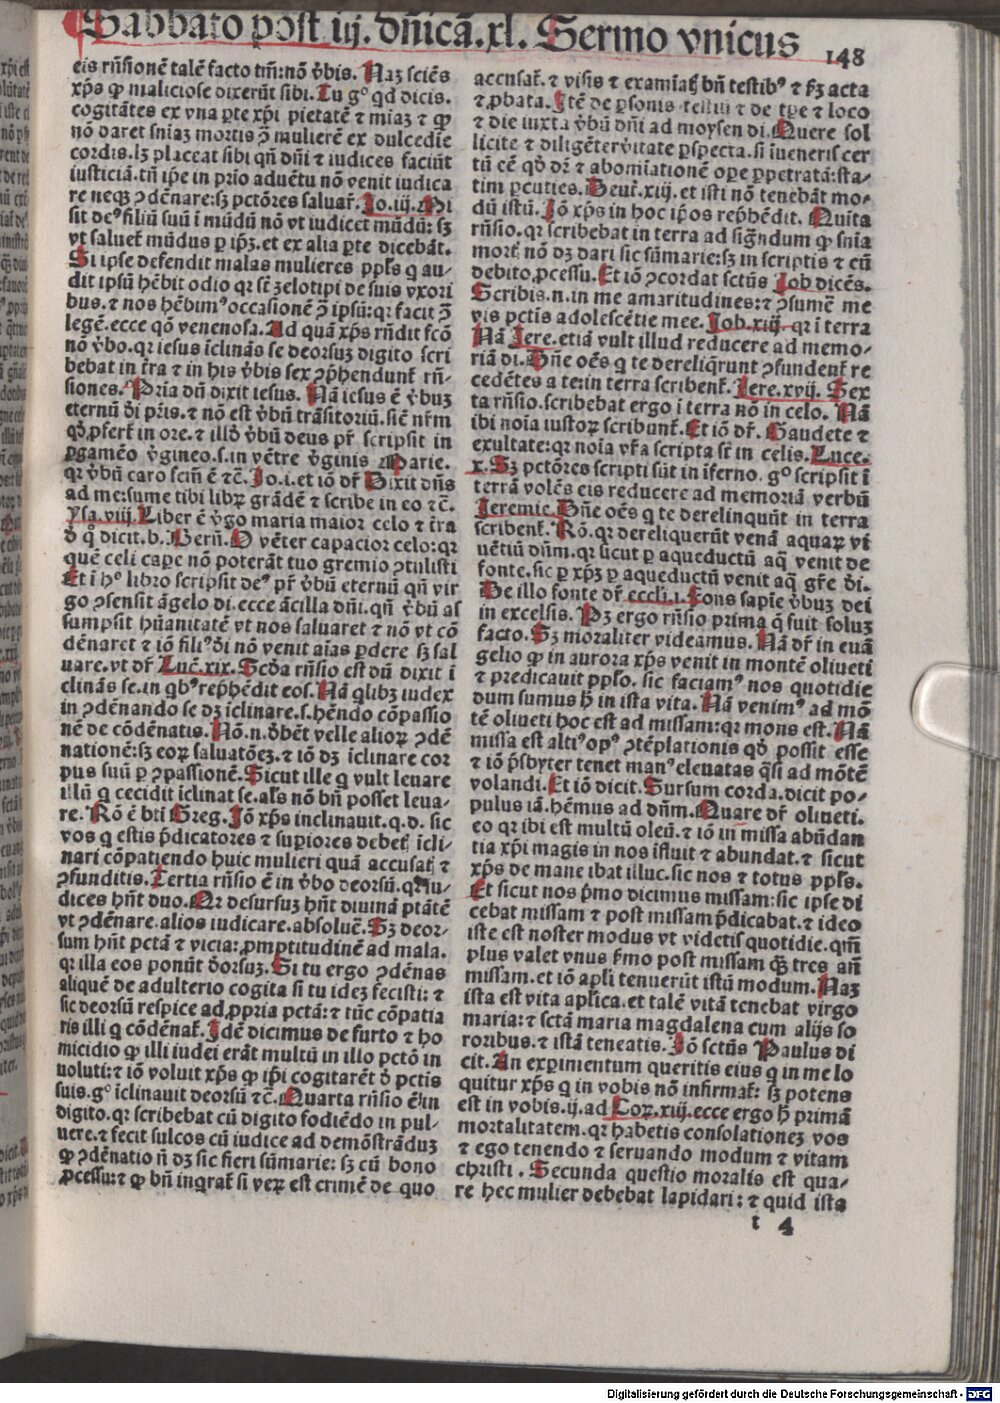 Sabbato post iij. dñicã.xl. Sermo vnicus
148
eis rñsionẽ talẽ facto tm̃: nõ v̓bis. Naz sciẽs
xp̃s ꝙ maliciose dixerũt sibi. Tu gº qd dicis.
cogitãtes ex vna ꝑte xp̃i pietatẽ ⁊ miaz ⁊ ꝙ
nõ daret sniaz mortis ↄ̃ mulierẽ ex dulcedie
cordis. lꝫ placeat sibi qñ dñi ⁊ iudices faciũt
iusticiã. tñ ip̃e in prio aduẽtu nõ venit iudica
re neqꝫ ↄdẽnare: sꝫ pctõres saluaf. Jo.iij. Mi
sit de⁹ filiũ suũ ĩ mũdũ nõ vt iudicet mũdũ: sꝫ
vt saluet̃ mũdus ꝑ ip̃ꝫ. et ex alia ꝑte dicebãt.
Si ipse defendit malas mulieres ppl̃s q au/
dit ipsũ hẽbit odio qꝛ st̃ zelotipi de suis vxori
bus. ⁊ nos hẽbim⁹ occasionẽ ↄ̃ ipsũ: qꝛ facit ↄ̃
legẽ. ecce qõ venenosa. Ad quã xp̃s rñdit fcõ
nõ v̓bo. qꝛ iesus ĩclinãs se deorsuꝫ digito scri
bebat in t̃ra ⁊ in his v̓bis sex ↄp̃hendunt̃ rñ/
siones. Pria dũ dixit iesus. Nã iesus ẽ v̓buꝫ
eternũ di pr̃is. ⁊ nõ est v̓bũ trãsitoriũ. siẽ nr̃m
qď ꝓfert̃ in ore. ⁊ illď v̓bũ deus pr̃ scripsit in
ꝑgamẽo v̓gineo. s. in vẽtre v̓ginis Marie.
qꝛ v̓bũ caro fctm̃ ẽ ⁊c̃. Jo.i. et iõ dr̃ Dixit dñs
ad me: sume tibi libꝝ grãdẽ ⁊ scribe in eo ⁊c̃.
Ysa.viij. Liber ẽ v̓go maria maior celo ⁊ t̃ra
ď q̊ dicit. b. Bern̄. O vẽter capacior celo: qꝛ
quẽ celi capẽ nõ poterãt tuo gremio ↄtulisti
Et ĩ hº libro scripsit de⁹ pr̃ v̓bũ eternũ qñ vir
go ↄsensit ãgelo di. ecce ãcilla dñi. qñ v̓bũ as
sumpsit hũanitatẽ vt nos saluaret ⁊ nõ vt cõ
dẽnaret ⁊ iõ fili⁹ di nõ venit aias ꝑdere sꝫ sal
uare. vt dr̃ Luc̃.xix. Scďa rñsio est dũ dixit ĩ
clinãs se. in qb⁹ rep̃hẽdit eos. Nã qlibꝫ iudex
in ↄdẽnando se dꝫ ĩclinare. s. hẽndo cõpassio
nẽ de cõdẽnatis. Nõ. n. ďbẽt velle alioꝝ ↄdẽ
nationẽ: sꝫ eoꝝ saluatõeꝫ. ⁊ iõ dꝫ ĩclinare cor
pus suũ ꝑ ↄpassionẽ. Sicut ille q vult leuare
illũ q cecidit ĩclinat se. als̃ nõ bñ posset leua/
re. Rõ ẽ bti Greg. Jõ xp̃s inclinauit. q. d. sic
vos q estis p̃dicatores ⁊ sup̃iores debet̃ ĩcli/
nari cõpatiendo huic mulieri quã accusat̃ ⁊
ↄfunditis. Tertia rñsio ẽ in v̓bo deorsũ. qꝛ iu/
dices hñt duo. Qꝛ desursuꝫ hñt diuinã ptãtẽ
vt ↄdẽnare. alios iudicare. absoluẽ. Sꝫ deor/
sum hñt pctã ⁊ vicia: ꝓmptitudinẽ ad mala.
qꝛ illa eos ponũt ďorsuꝫ. Si tu ergo ↄdẽnas
aliquẽ de adulterio cogita si tu ideꝫ fecisti: ⁊
sic deorsũ respice ad ꝓpria pctã: ⁊ tũc cõpatia
ris illi q cõdẽnat̃. Jdẽ dicimus de furto ⁊ ho
micidio ꝙ illi iudei erãt multũ in illo pctõ in
uoluti: ⁊ iõ voluit xp̃s ꝙ ip̃i cogitarẽt ď pctis
suis. gº ĩclinauit deorsũ ⁊c̃. Quarta rñsio ẽ in
digito. qꝛ scribebat cũ digito fodiẽdo in pul/
uere. ⁊ fecit sulcos cũ iudice ad demõstrãduꝫ
ꝙ ↄdẽnatio ñ dꝫ sic fieri sũmarie: sꝫ cũ bono
ꝓcessu: ⁊ ꝙ bñ ingrat̃ si veꝝ est crimẽ de quo
accusat̃. ⁊ visis ⁊ examiat̃ bñ testib⁹ ⁊ fꝫ acta
⁊ ꝓbata. Jtẽ de ꝑsonis testiũ ⁊ de tꝑe ⁊ loco
⁊ die iuxta v̓bũ dñi ad moysen di. Quere sol
licite ⁊ diligẽter v̓itate ꝑspecta. si iueneris cer
tũ eẽ qď dr̃ ⁊ abomiationẽ oꝑe ꝑpetratã: sta/
tim ꝑcuties. Deut̃.xiij. et isti nõ tenebãt mo/
dũ istũ. Jõ xp̃s in hoc ip̃os rep̃hẽdit. Quita
rñsio. qꝛ scribebat in terra ad sigñdum ꝙ snia
mort̃ nõ dꝫ dari sic sũmarie: sꝫ in scriptis ⁊ cũ
debito ꝓcessu. Et iõ ↄcordat sctũs Job dicẽs.
Scribis. n. in me amaritudines: ⁊ ↄsumẽ me
vis pctis adolescẽtie mee. Job.xiij. qꝛ ĩ terra
Nã Jere. etiã vult illud reducere ad memo/
riã di. Dñe oẽs q te dereliq̃runt ↄfundent̃ re
cedẽtes a te: in terra scribent̃. Jere.xvij. Sex
ta rñsio. scribebat ergo ĩ terra nõ in celo. Nã
ibi noĩa iustoꝝ scribunt̃. Et iõ dr̃. Gaudete ⁊
exultate: qꝛ noĩa vr̃a scripta st̃ in celis. Luce.
x. Sꝫ pctõres scripti sũt in iferno. gº scripsit ĩ
terrã volẽs eis reducere ad memoriã verbũ
Jeremie. Dñe oẽs q te derelinquñt in terra
scribent̃. Rõ. qꝛ dereliquerũt venã aquaꝝ vi
uẽtiũ dñm. qꝛ sicut ꝑ aqueductũ aq̃ venit de
fonte. sic ꝑ xp̃ꝫ ꝑ aqueductũ venit aq̃ gr̃e di.
De illo fonte dr̃ eccl̃i.i. Fons sapĩe v̓buꝫ dei
in excelsis. Pꝫ ergo rñsio prima q̃ fuit soluꝫ
facto. Sꝫ moraliter videamus. Nã dr̃ in euã
gelio ꝙ in aurora xp̃s venit in montẽ oliueti
⁊ predicauit pplo. sic faciam⁹ nos quotidie
dum sumus h̃ in ista vita. Nã venim⁹ ad mõ
tẽ oliueti hoc est ad missam: qꝛ mons est. Nã
missa est alti⁹ op⁹ ↄtẽplationis qď possit esse
⁊ iõ p̃sbyter tenet man⁹ eleuatas q̃si ad mõtẽ
volandi. Et iõ dicit. Sursum corda. dicit po/
pulus iã. hẽmus ad dñm. Quare dr̃ oliueti.
eo qꝛ ibi est multũ oleũ. ⁊ iõ in missa abũdan
tia xp̃i magis in nos ifluit ⁊ abundat. ⁊ sicut
xp̃s de mane ibat illuc. sic nos ⁊ totus ppl̃s.
Et sicut nos p̃mo dicimus missam: sic ipse di
cebat missam ⁊ post missam p̃dicabat. ⁊ ideo
iste est noster modus vt videtis quotidie. qm̃
plus valet vnus f̃mo post missam q̃ꝫ tres añ
missam. et iõ apl̃i tenuerũt istũ modum. Naꝫ
ista est vita apl̃ica. et talẽ vitã tenebat virgo
maria: ⁊ sctã maria magdalena cum alijs so
roribus. ⁊ istã teneatis. Jõ sctũs Paulus di
cit. An exꝑimentum queritis eius q in me lo
quitur xp̃s q in vobis nõ infirmat̃: sꝫ potens
est in vobis. ij. ad Coꝝ.xiij. ecce ergo h̃ primã
mortalitatem. qꝛ habetis consolationeꝫ vos
⁊ ego tenendo ⁊ seruando modum ⁊ vitam
christi. Secunda questio moralis est qua/
re hec mulier debebat lapidari: ⁊ quid ista
t 4
Digitalisierung gefördert durch die Deutsche Forschungsgemeinschaft - DFG